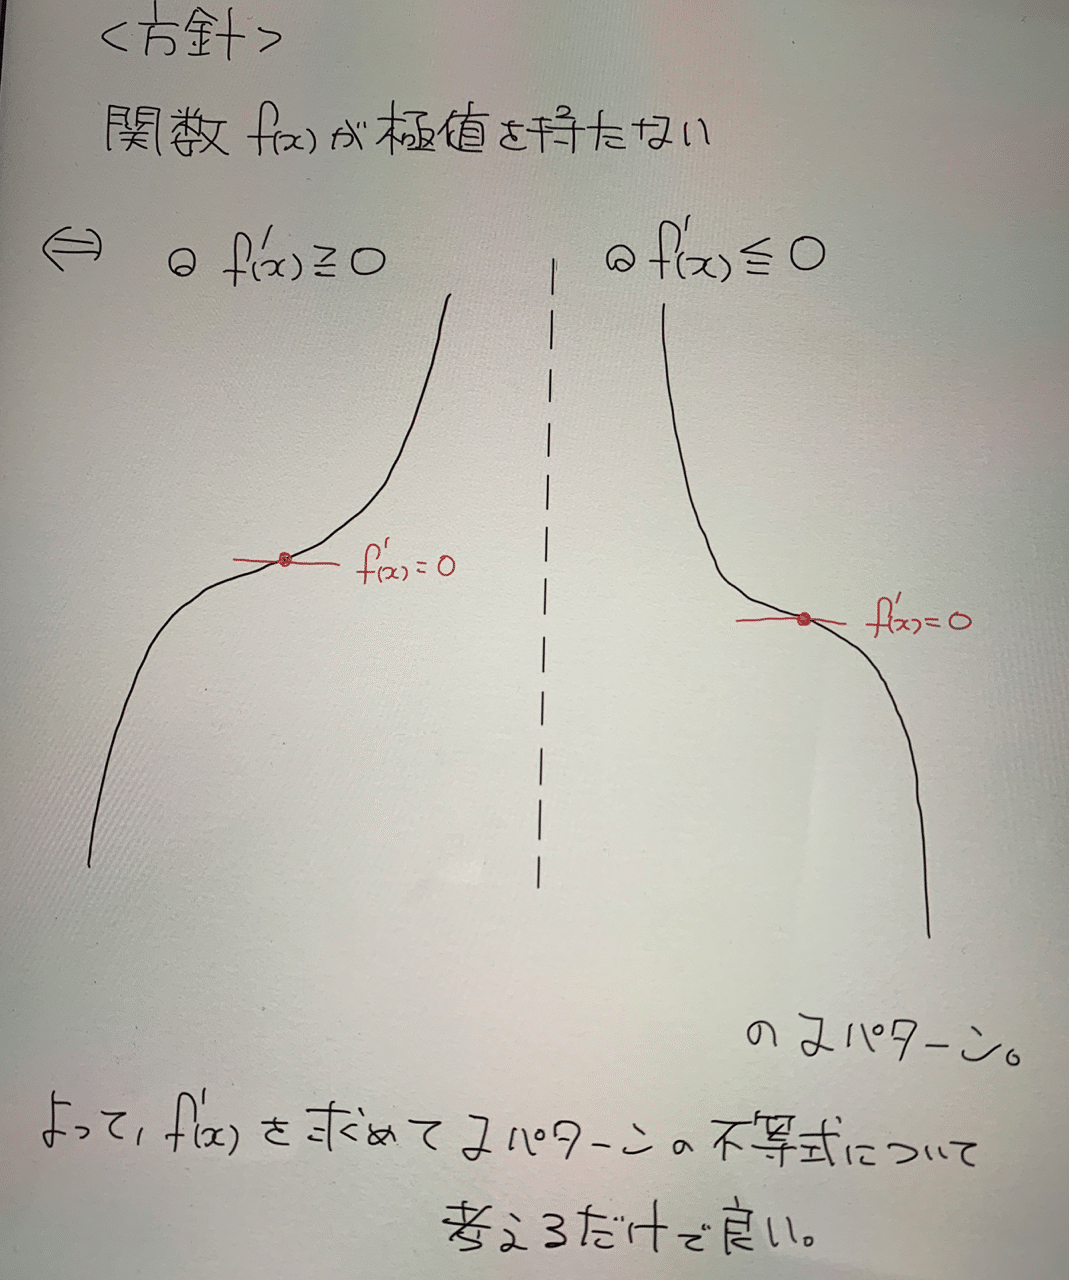 <方針>
関数 f(x) が極値を持たない
⇔ ⊙ f'(x) ≧ 0 ⊙ f'(x) ≦ 0
f'(x) = 0
f'(x) = 0
の2パターン。
よって, f'(x) を求めて2パターンの不等式について
考えるだけで良い。